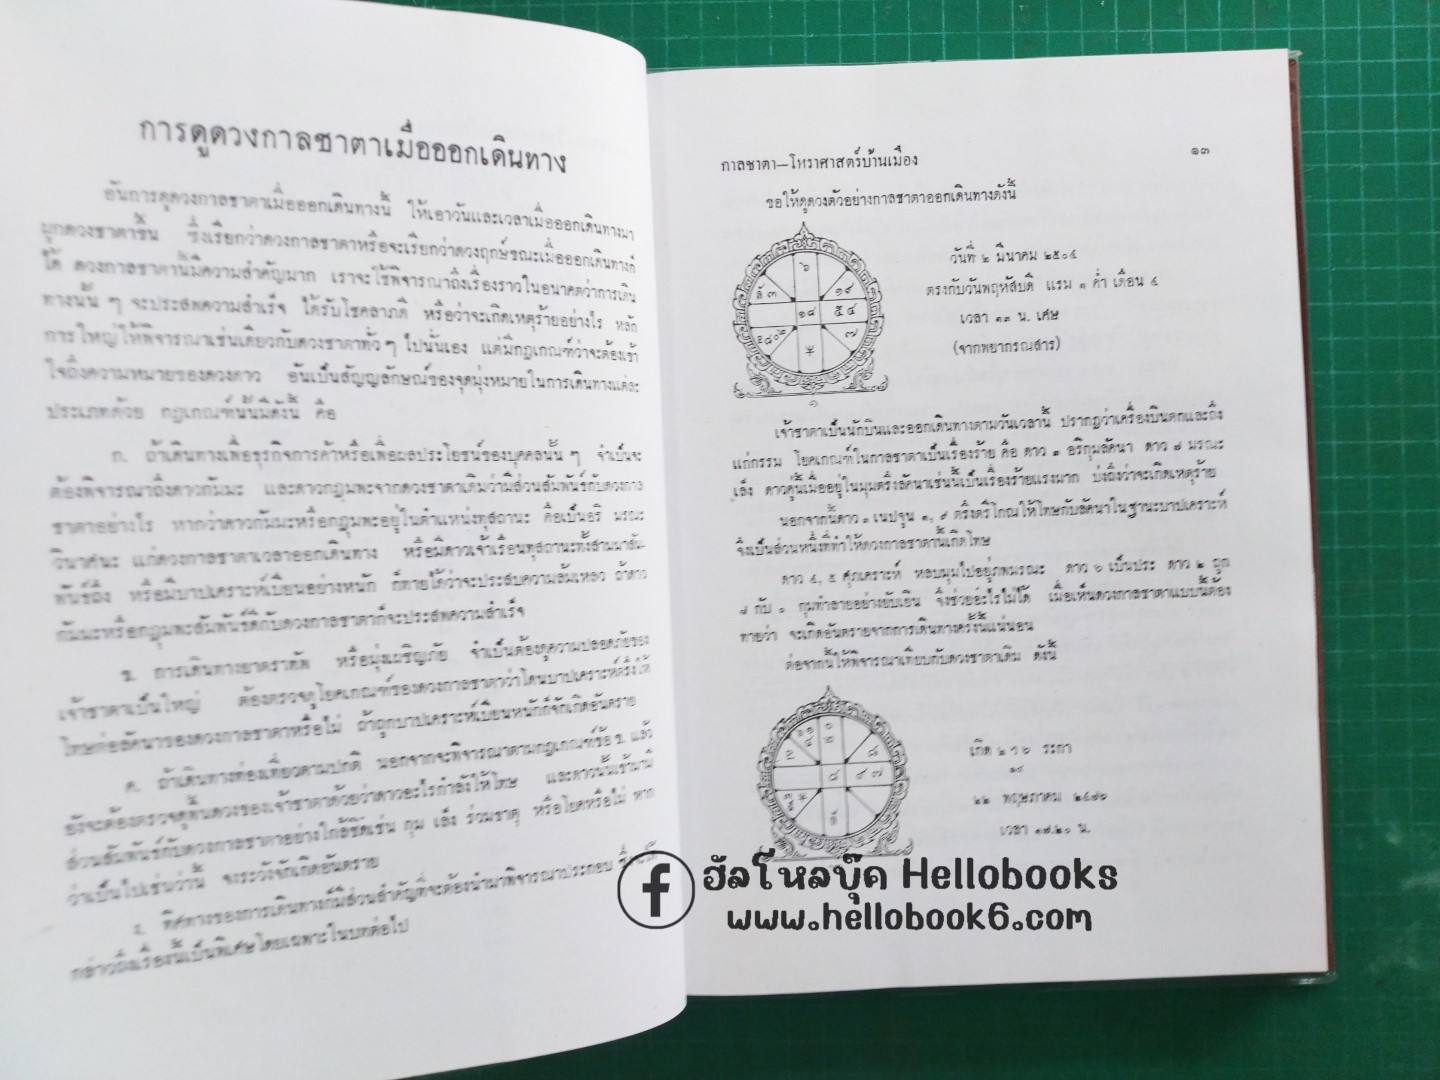 การดูดวงกาลชาตาเมื่อออกเดินทาง
อันการดูดวงกาลชาตาเมื่อออกเดินทางนี้ ให้เอาวันและเวลาเมื่อออกเดินทางมา
ผูกดวงชาตาขึ้น ซึ่งเรียกว่าดวงกาลชาตาหรือจะเรียกว่าดวงฤกษ์ขณะเมื่อออกเดินทางก็
ได้ ดวงกาลชาตานี้มีความสำคัญมาก เราจะใช้พิจารณาถึงเรื่องราวในอนาคตว่าการเดิน
ทางนั้น ๆ จะประสพความสำเร็จ ได้รับโชคลาภดี หรือว่าจะเกิดเหตุร้ายอย่างไร หลัก
การใหญ่ให้พิจารณาเช่นเดียวกับดวงชาตาทั่ว ๆ ไปนั่นเอง แต่มีกฎเกณฑ์ว่าจะต้องเข้า
ใจถึงความหมายของดวงดาว อันเป็นสัญญลักษณ์ของจุดมุ่งหมายในการเดินทางแต่ละ
ประเภทด้วย กฎเกณฑ์นั้นมีดังนี้ คือ
ก. ถ้าเดินทางเพื่อธุรกิจการค้าหรือเพื่อผลประโยชน์ของบุคคลนั้น ๆ จำเป็นจะ
ต้องพิจารณาถึงดาวกัมมะ และดาวกฎุมพะจากดวงชาตาเดิมว่ามีส่วนสัมพันธ์กับดวงกาล
ชาตาอย่างไร หากว่าดาวกัมมะหรือกฎุมพะอยู่ในตำแหน่งทุสถานะ คือเป็นอริ มรณะ
วินาศนะ แก่ดวงกาลชาตาเวลาออกเดินทาง หรือมีดาวเจ้าเรือนทุสถานะทั้งสามมาสัม-
พันธ์ถึง หรือมีบาปเคราะห์เบียนอย่างหนัก ก็ทายได้ว่าจะประสบความล้มเหลว ถ้าดาว
กัมมะหรือกฎุมพะสัมพันธ์ดีกับดวงกาลชาตาก็จะประสพความสำเร็จ
ข. การเดินทางยาตราทัพ หรือมุ่งเผชิญภัย จำเป็นต้องดูความปลอดภัยของ
เจ้าชาตาเป็นใหญ่ ต้องตรวจดูโยคเกณฑ์ของดวงกาลชาตาว่าโดนบาปเคราะห์ตรึงให้
โทษต่อลัคนาของดวงกาลชาตาหรือไม่ ถ้าถูกบาปเคราะห์เบียนหนักก็จักเกิดอันตราย
ค. ถ้าเดินทางท่องเที่ยวตามปกติ นอกจากจะพิจารณาตามกฎเกณฑ์ข้อ ข. แล้ว
ยังจะต้องตรวจดูพื้นดวงของเจ้าชาตาด้วยว่าดาวอะไรกำลังให้โทษ และดาวนั้นเข้ามามี
ส่วนสัมพันธ์กับดวงกาลชาตาอย่างใกล้ชิดเช่น กุม เล็ง ร่วมธาตุ หรือโยคหรือไม่ หาก
ว่าเป็นไปเช่นว่านี้ จงระวังจักเกิดอันตราย
ง. ทิศทางของการเดินทางก็มีส่วนสำคัญที่จะต้องนำมาพิจารณาประกอบ ซึ่ง
กล่าวถึงเรื่องนี้เป็นพิเศษโดยเฉพาะในบทต่อไป
กาลชาตา–โหราศาสตร์บ้านเมือง ๑๓
ขอให้ดูดวงตัวอย่างกาลชาตาออกเดินทางดังนี้
วันที่ ๒ มีนาคม ๒๕๐๔
ตรงกับวันพฤหัสบดี แรม ๑ ค่ำ เดือน ๔
เวลา ๑๓ น. เศษ
(จากพยากรณสาร)
๖
ลั ๓
๑๙
๑๘
๕๔
๗
๑
เจ้าชาตาเป็นนักบินและออกเดินทางตามวันเวลานี้ ปรากฏว่าเครื่องบินตกและถึง
แก่กรรม โยคเกณฑ์ในกาลชาตาเป็นเรื่องร้าย คือ ดาว ๓ อริกุมลัคนา ดาว ๗ มรณะ
เล็ง ดาวคู่นี้เมื่ออยู่ในมุมตรึงลัคนาเช่นนี้เป็นเรื่องร้ายแรงมาก บ่งถึงว่าจะเกิดเหตุร้าย
นอกจากนี้ดาว ๓ เนปจูน ๑, ๙ ตรึงตรีโกณให้โทษกับลัคนาในฐานะบาปเคราะห์
จึงเป็นส่วนหนึ่งที่ทำให้ดวงกาลชาตานี้เกิดโทษ
ดาว ๔, ๕ ศุภเคราะห์ หลบมุมไปอยู่ภพมรณะ ดาว ๖ เป็นประ ดาว ๒ ถูก
๘ กับ ๐ กุมทำลายอย่างยับเยิน จึงช่วยอะไรไม่ได้ เมื่อเห็นดวงกาลชาตาแบบนี้ต้อง
ทายว่า จะเกิดอันตรายจากการเดินทางครั้งนี้แน่นอน
ต่อจากนี้ให้พิจารณาเทียบกับดวงชาตาเดิม ดังนี้
เกิด ๒ ๖ ระกา
๒๒ พฤษภาคม ๒๔๗๖
เวลา ๑๗.๒๐ น.
๘
๙ ๗
ฮัลโหลบุ๊ค Hellobooks
www.hellobook6.com